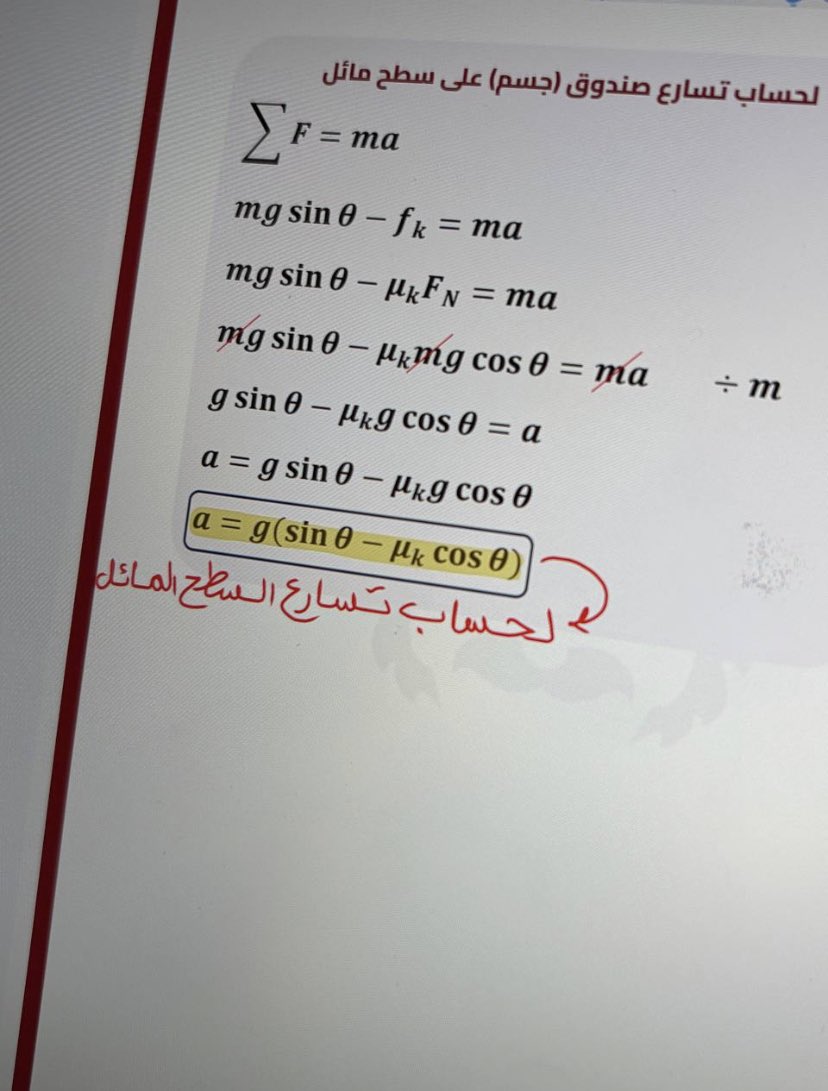 لحساب تسارع صندوق (جسم) على سطح مائل
∑ F = ma
mg sin θ − fₖ = ma
mg sin θ − μₖF_N = ma
mg sin θ − μₖmg cos θ = ma ÷ m
g sin θ − μₖg cos θ = a
a = g sin θ − μₖg cos θ
a = g(sin θ − μₖ cos θ)
لحساب تسارع السطح المائل